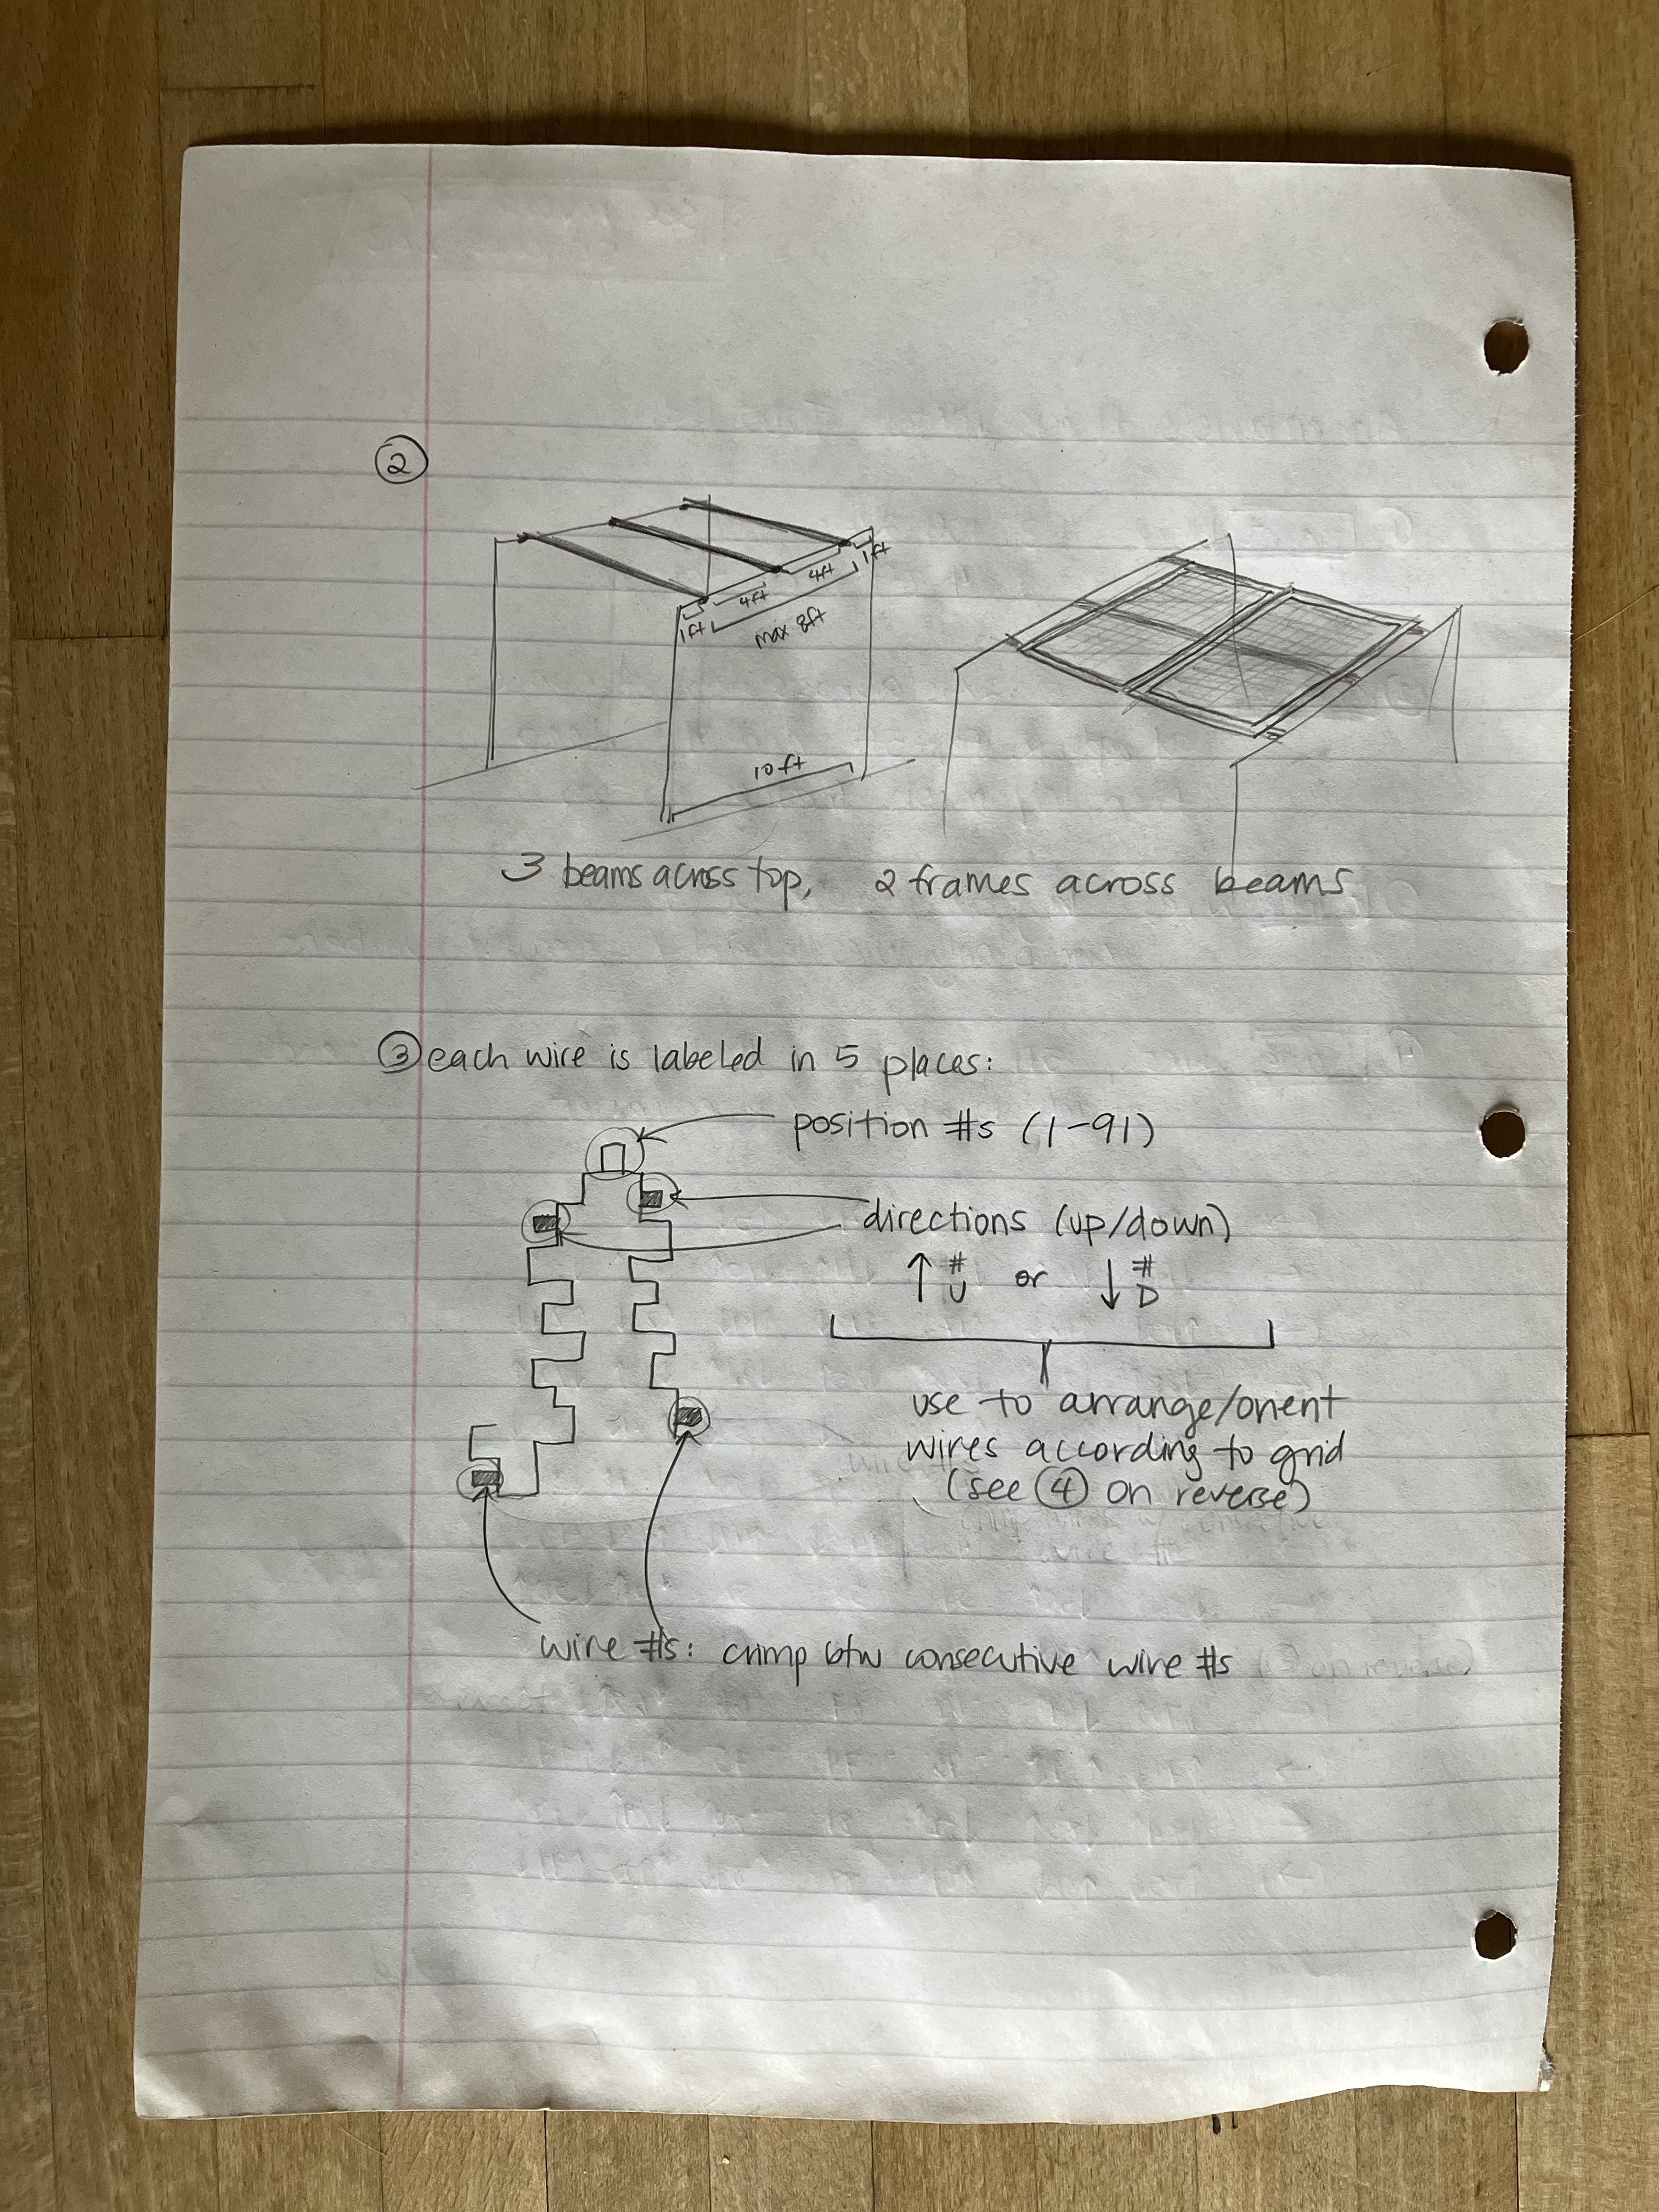 ②
1ft
4ft
4ft
1ft
max 8ft
10ft
3 beams across top,
2 frames across beams
③ each wire is labeled in 5 places:
position #s (1-91)
directions (up/down)
↑ # U or ↓ # D
use to arrange/orient
wires according to grid
(see ④ on reverse)
wire #s: crimp btw consecutive wire #s